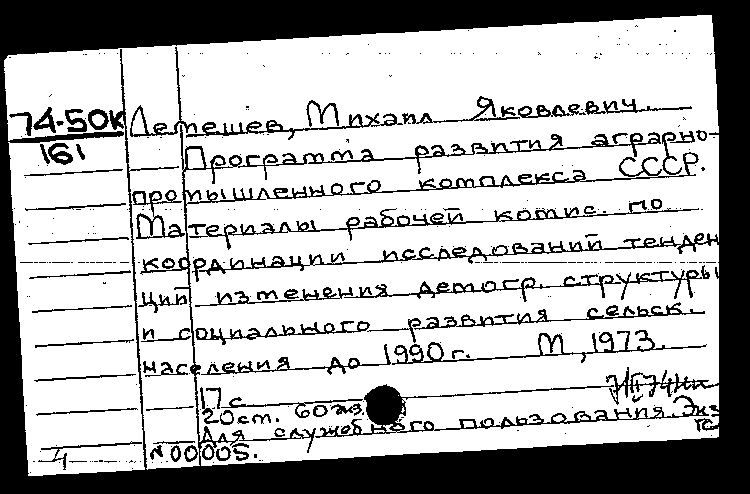 74-50К Лемешев, Михаил Яковлевич.
161
Программа развития аграрно-
промышленного комплекса СССР.
Материалы рабочей комис. по
координации исследований тенден
ций изменения демогр. структуры
и социального развития сельск.
населения до 1990г. М, 1973.
17с
20см. 60экз
Для служебного пользования. Экз
№00005.
4